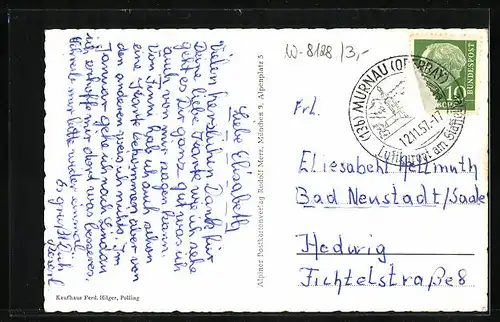 W-8128 /3,-
Liebe Elisabeth
Vielen herzlichen Dank für
Deine liebe Karte wie ich sehe
geht es Dir ganz gut was ich
auch von mir sagen kann.
Von Finni hab ich auch schon
eine Karte bekommen aber von
den anderen was ich nichts. Im
Januar gehe ich nach Lindau
ich erhoffe mir dort was besseres.
Schreib mir bitte wieder einmal.
Es grüßt Dich
Kaufhaus Ferd. Hilger, Polling
Alpiner Postkartenverlag Rudolf Merz, München 9, Alpenplatz 5
(13b) MURNAU (OBERBAY)
12.11.57.-17
Luftkurort am Staffelsee
DEUTSCHE BUNDESPOST
10
Frl.
Eliesabeht Hellmuth
Bad Neustadt/Saale
Hedwig
Fichtelstraße 8